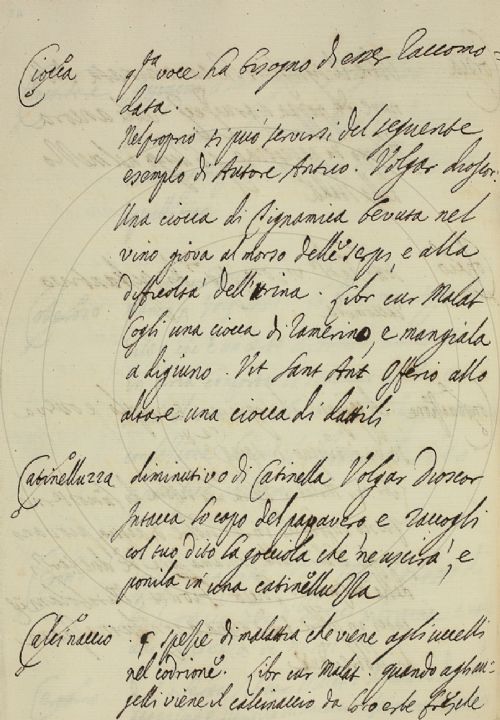 Ciocca q.ta voce ha bisogno di esser raccomo-
data.
Nel proprio si può servirsi del seguente
esempio di Autore Antico. Volgar Dioscor:
Una ciocca di bevuta nel
vino giova al morso delle serpi, e alla
difficoltà dell'urina. Libr cur Malat
Cogli una ciocca di ramerino, e mangiala
a digiuno. Vit Sant Ant Offerio allo
altare una ciocca di dattili
Catinelluzza diminutivo di Catinella Volgar Dioscor
Intacca lo capo del papavero e raccogli
col tuo dito la gocciola che n'e uscirà, e
ponila in una catinelluzza
Calcinaccio spezie di malattia che viene agli uccelli
nel codrione. Libr cur Malat. quando agli au-
gelli viene il calcinaccio da loro erbe fresche